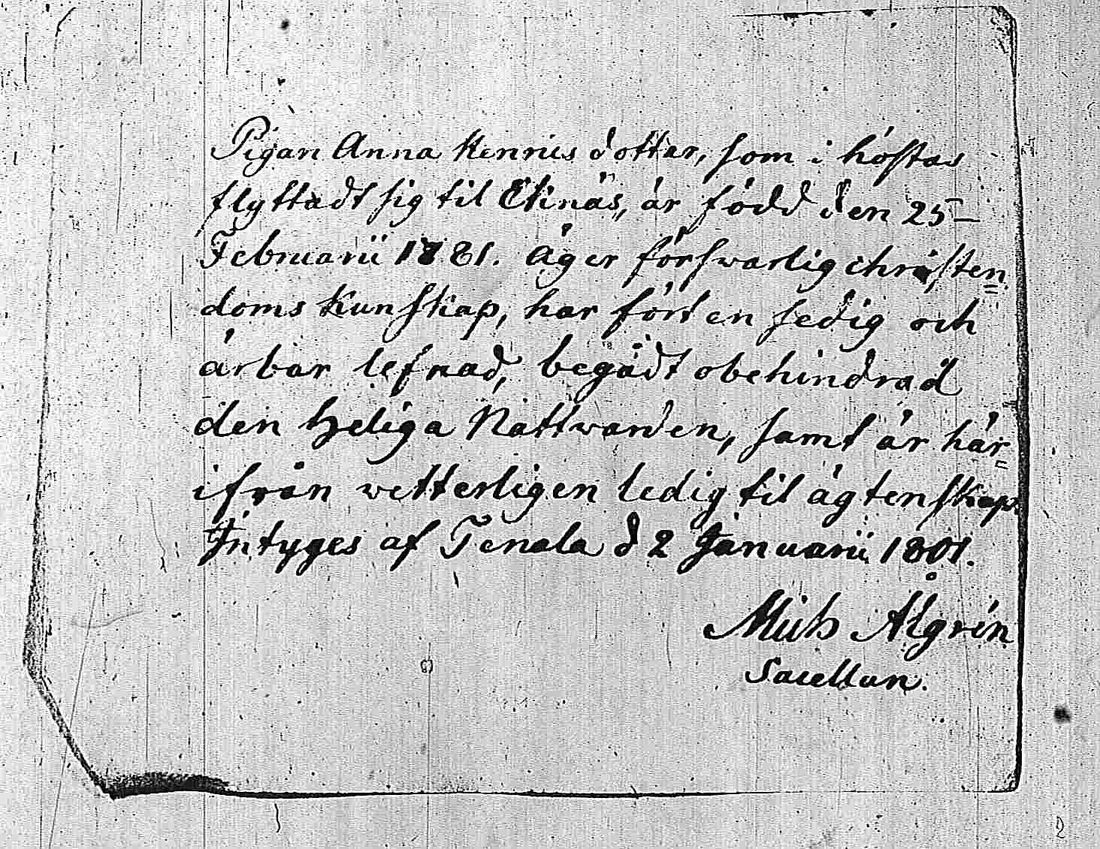 Pigan Anna Henrics dotter, som i höstas
flyttadt sig til Eknäs, är född den 25
Februarii 1781. Äger försvarlig christen=
doms kunskap, har fört en sedig och
ärbar lefnad, begådt obehindrad
den Heliga Nattwarden, samt är här=
ifrån wetterligen ledig til ägtenskap.
Intyges af Tenala d 2 Januarii 1801.
Mich Ålgrén
Sacellan.
2